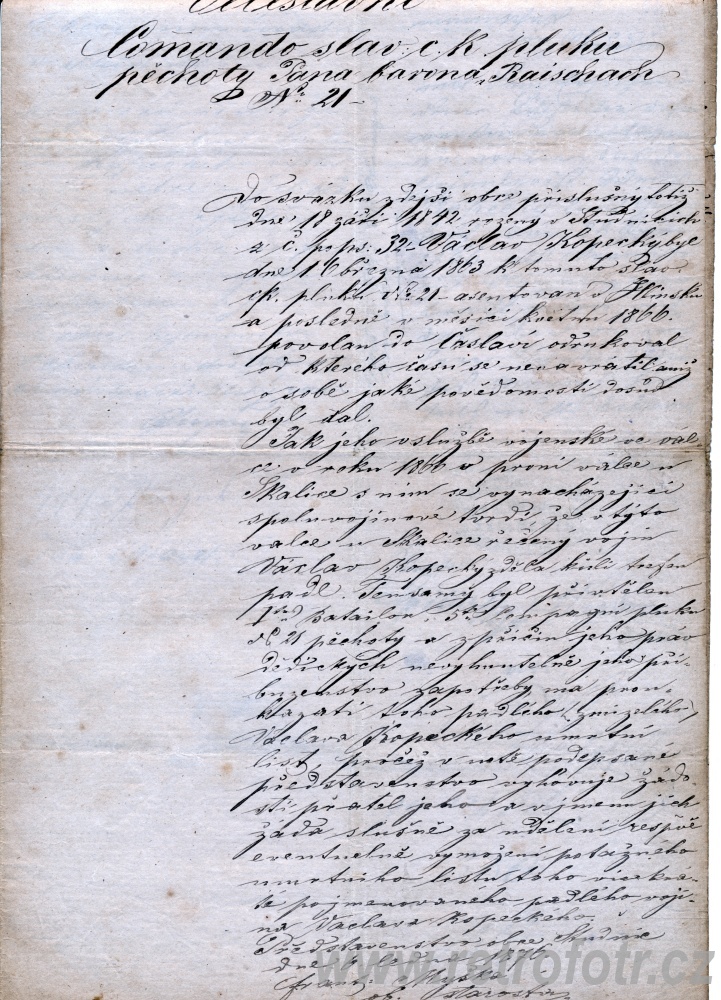 Commando slav: c. k. pluku
pěchoty Pana barona Raischach
No 21
Do svazku zdejší obce příslušný totiž
dne 18 září 1842 rozený v Studnicích
z č. po ps: 32 Václav Kopecký byl
dne 16 března 1863 k tomuto slav.
ck. pluku No 21 asentovan v Hlinsku
a posledně v měsíci květnu 1866.
povolan do Čáslavi odrukoval
od kterého času se nenavrátil aniž
o sobě jaké povědomosti dosud
byl dal.
Tak jeho v službě vojenské ve vál-
ce v roku 1866 v první válce u
Skalice s ním se vynacházející
spoluvojínové tvrdí, že v týto
valce u Skalice řečený vojín
Václav Kopecký z děla kulí trefen
padl. Ten samý byl přivtělen
Batailon 5te Compagní pluku
No 21 pěchoty a z příčin jeho práv
dědických nevyhnutelně jeho pří-
buzenstvo zapotřeby má prou-
kázati toho padlého /zmizelého/
Václava Kopeckého umrtní
list, pročež v notě podepsané
představenstvo vyhovuje žádo-
sti přátel jeho a v jmenu jich
žádá slušně za udělení respve
eventuelně vymožení potažného
umrtního listu toho vícekrá-
te pojmenovaného padlého vojí-
na Václava Kopeckého.
Představenstvo obce Studnic
dne
Franz
ob. starosta
www.retrofotr.cz